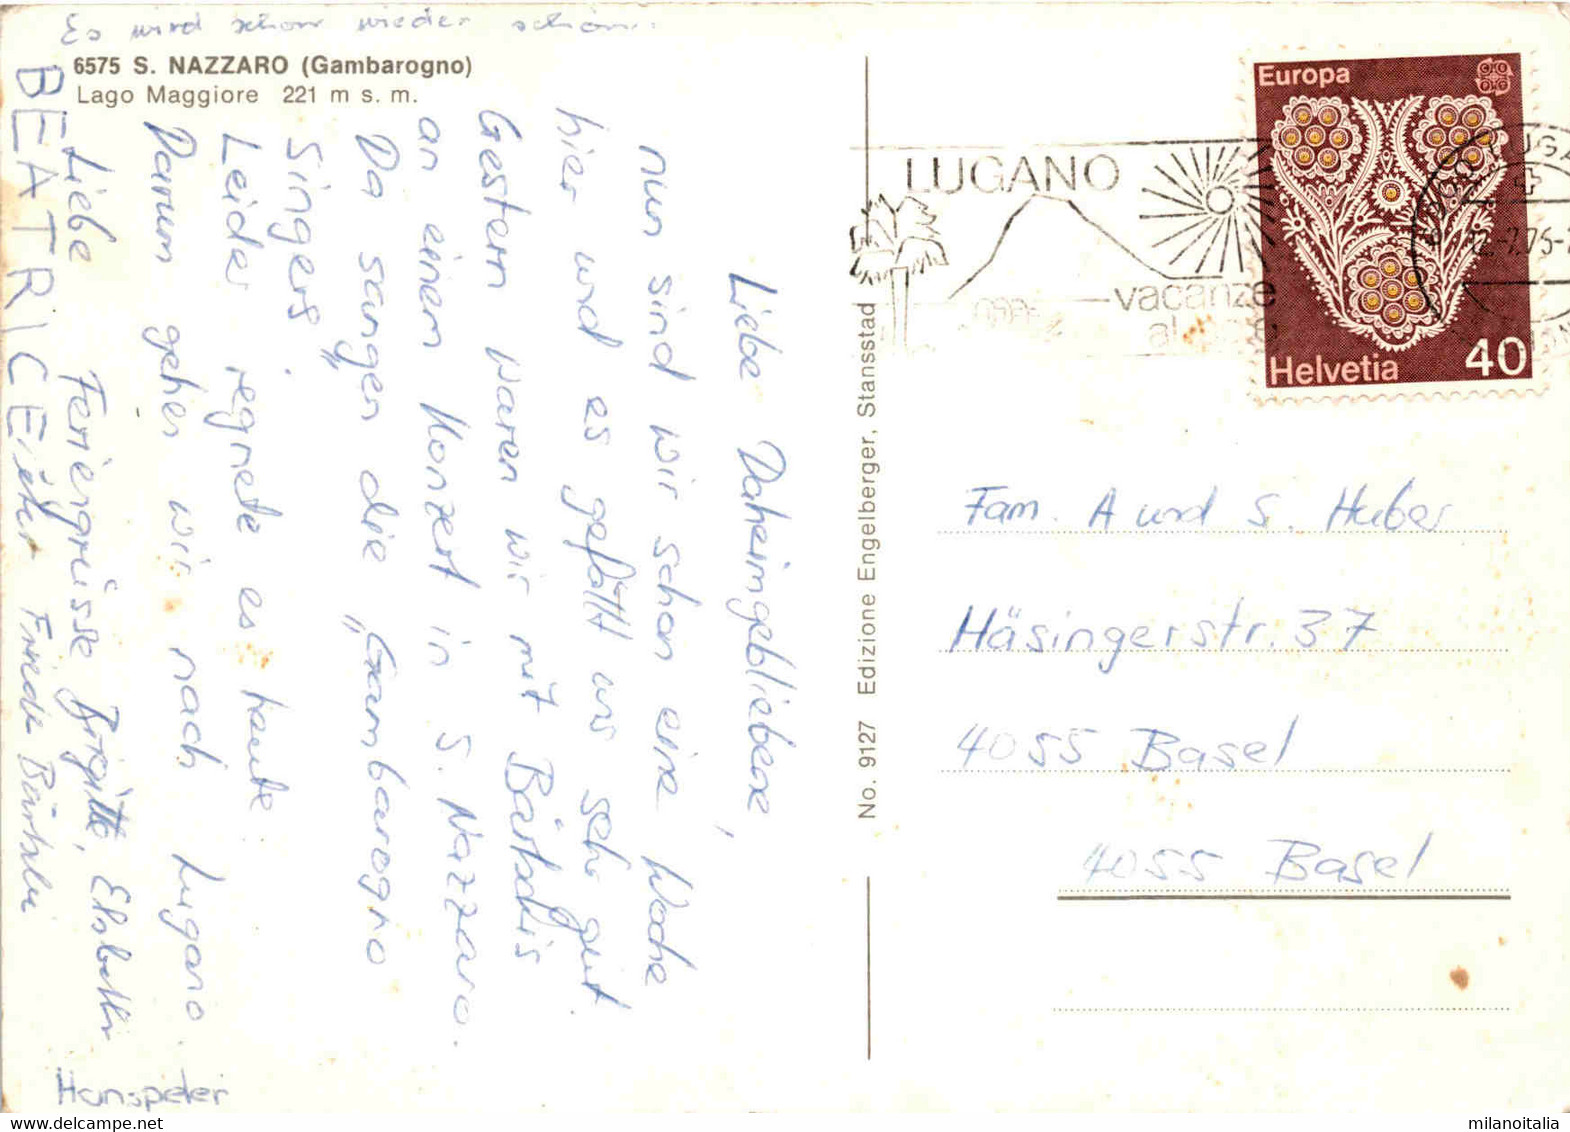 Es wird schon wieder schön.
6575 S. NAZZARO (Gambarogno)
Lago Maggiore 221 m s. m.
Liebe Daheimgebliebene,
nun sind wir schon eine Woche
hier und es gefällt uns sehr gut.
Gestern waren wir mit Bärtschis
an einem Konzert in S. Nazzaro.
Da sangen die „Gambarogno
Singers“.
Leider regnete es heute.
Darum gehen wir nach Lugano
Liebe Feriengrüsse Brigitte, Elsbeth
BEATRICE
Hanspeter
No. 9127 Edizione Engelberger, Stansstad
LUGANO
vacanze
Europa
Helvetia 40
Fam. A und S. Huber
Häsingerstr. 37
4055 Basel
4055 Basel
milanoitalia